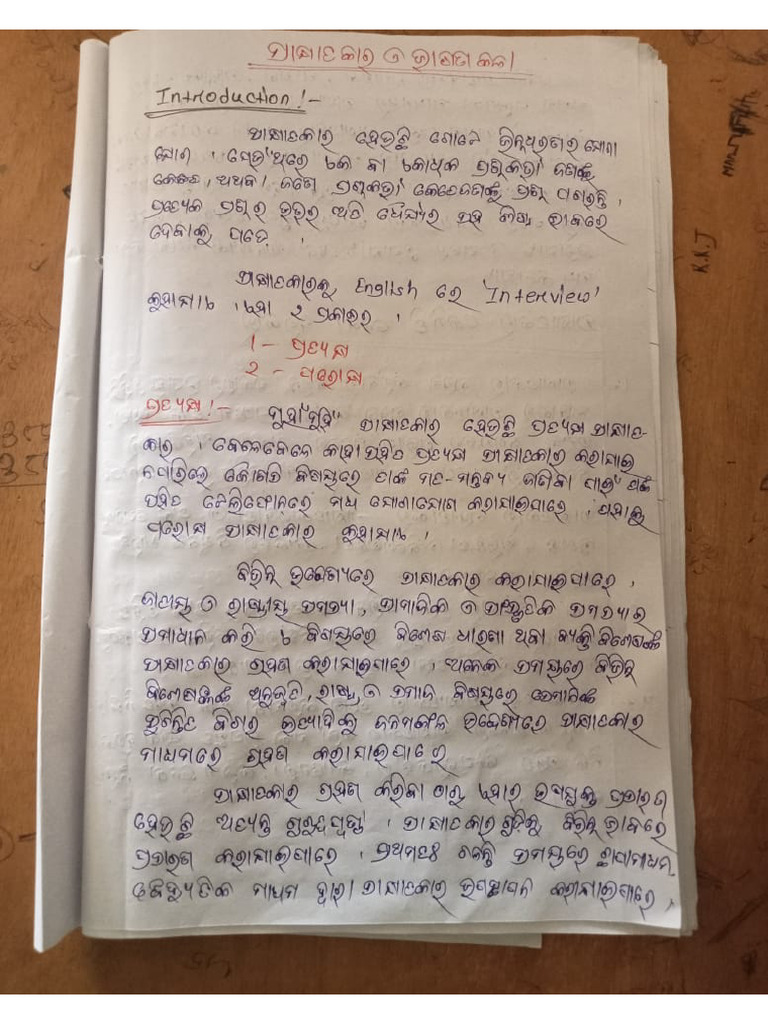 ସାକ୍ଷାତକାର ଓ ଭାଷଣ କଳା
Introduction :-
ସାକ୍ଷାତକାର ହେଉଛି ଗୋଟେ ଭିନ୍ନ ଧରଣର ଯୋଗା
ଯୋଗ । ଯେଉଁଥିରେ ଏକ ବା ଏକାଧିକ ପ୍ରଶ୍ନକର୍ତା ଜଣଙ୍କୁ
ଅଥବା ଜଣେ ପ୍ରଶ୍ନକର୍ତା କେତେଜଣଙ୍କୁ ପ୍ରଶ୍ନ ପଚାରନ୍ତି ।
ପ୍ରତ୍ୟେକ ପ୍ରଶ୍ନର ଉତ୍ତର ଅତି ଧୈର୍ଯ୍ୟର ସହ ଭାବରେ
ଦେବାକୁ ପଡେ ।
ସାକ୍ଷାତକାରକୁ English ରେ 'Interview'
କୁହାଯାଏ । ଏହା ୨ ପ୍ରକାରର ।
1 - ପ୍ରତ୍ୟକ୍ଷ
2 - ପରୋକ୍ଷ
ପ୍ରତ୍ୟକ୍ଷ :- ମୁହାଁମୁହିଁ ସାକ୍ଷାତକାର ହେଉଛି ପ୍ରତ୍ୟକ୍ଷ ସାକ୍ଷାତ-
କାର । କେତେବେଳେ କାହା ସହିତ ପ୍ରତ୍ୟକ୍ଷ ସାକ୍ଷାତକାର କରାଯାଇ
ନପାରିଲେ କୌଣସି ବିଷୟରେ ତାଙ୍କ ମତ-ମନ୍ତବ୍ୟ ଜାଣିବା ପାଇଁ ତାଙ୍କ
ସହିତ ଟେଲିଫୋନରେ ମଧ୍ୟ ଯୋଗାଯୋଗ କରାଯାଇପାରେ । ଏହାକୁ
ପରୋକ୍ଷ ସାକ୍ଷାତକାର କୁହାଯାଏ ।
ବିଭିନ୍ନ ଉଦ୍ଦେଶ୍ୟରେ ସାକ୍ଷାତକାର କରାଯାଇପାରେ ।
ଜାତୀୟ ଓ ରାଷ୍ଟ୍ରୀୟ ସମସ୍ୟା, ସାମାଜିକ ଓ ସାଂସ୍କୃତିକ ସମସ୍ୟାର
ସମାଧାନ କରି ଏ ବିଷୟରେ ବିଶେଷ ଧାରଣା ଥିବା ବ୍ୟକ୍ତି ବିଶେଷଙ୍କ
ସାକ୍ଷାତକାର ଗ୍ରହଣ କରାଯାଇପାରେ । ଅନେକ ସମୟରେ ବିଭିନ୍ନ
ବିଶେଷଜ୍ଞଙ୍କ ଅନୁଭୂତି, ରାଷ୍ଟ୍ର ଓ ସମାଜ ବିଷୟରେ ସେମାନଙ୍କ
ସୁଚିନ୍ତିତ ବିଚାର ଇତ୍ୟାଦିକୁ ଜନମଙ୍ଗଳ ଉଦ୍ଦେଶ୍ୟରେ ସାକ୍ଷାତକାର
ମାଧ୍ୟମରେ ଗ୍ରହଣ କରାଯାଇପାରେ
ସାକ୍ଷାତକାର ଗ୍ରହଣ କରିବା ଠାରୁ ଏହାର ଉପଯୁକ୍ତ ପ୍ରସାରଣ
ହେଉଛି ଅତ୍ୟନ୍ତ ଗୁରୁତ୍ୱପୂର୍ଣ୍ଣ । ସାକ୍ଷାତକାର ଗୁଡ଼ିକୁ ବିଭିନ୍ନ ଭାବରେ
ପ୍ରସାରଣ କରାଯାଇପାରେ । ପ୍ରଥମତଃ ସମୟରେ ଛାପାମାଧ୍ୟମ,
ବୈଦ୍ୟୁତିକ ମାଧ୍ୟମ ଦ୍ୱାରା ସାକ୍ଷାତକାର ଉପସ୍ଥାପନ କରାଯାଇପାରେ,
R.K.J